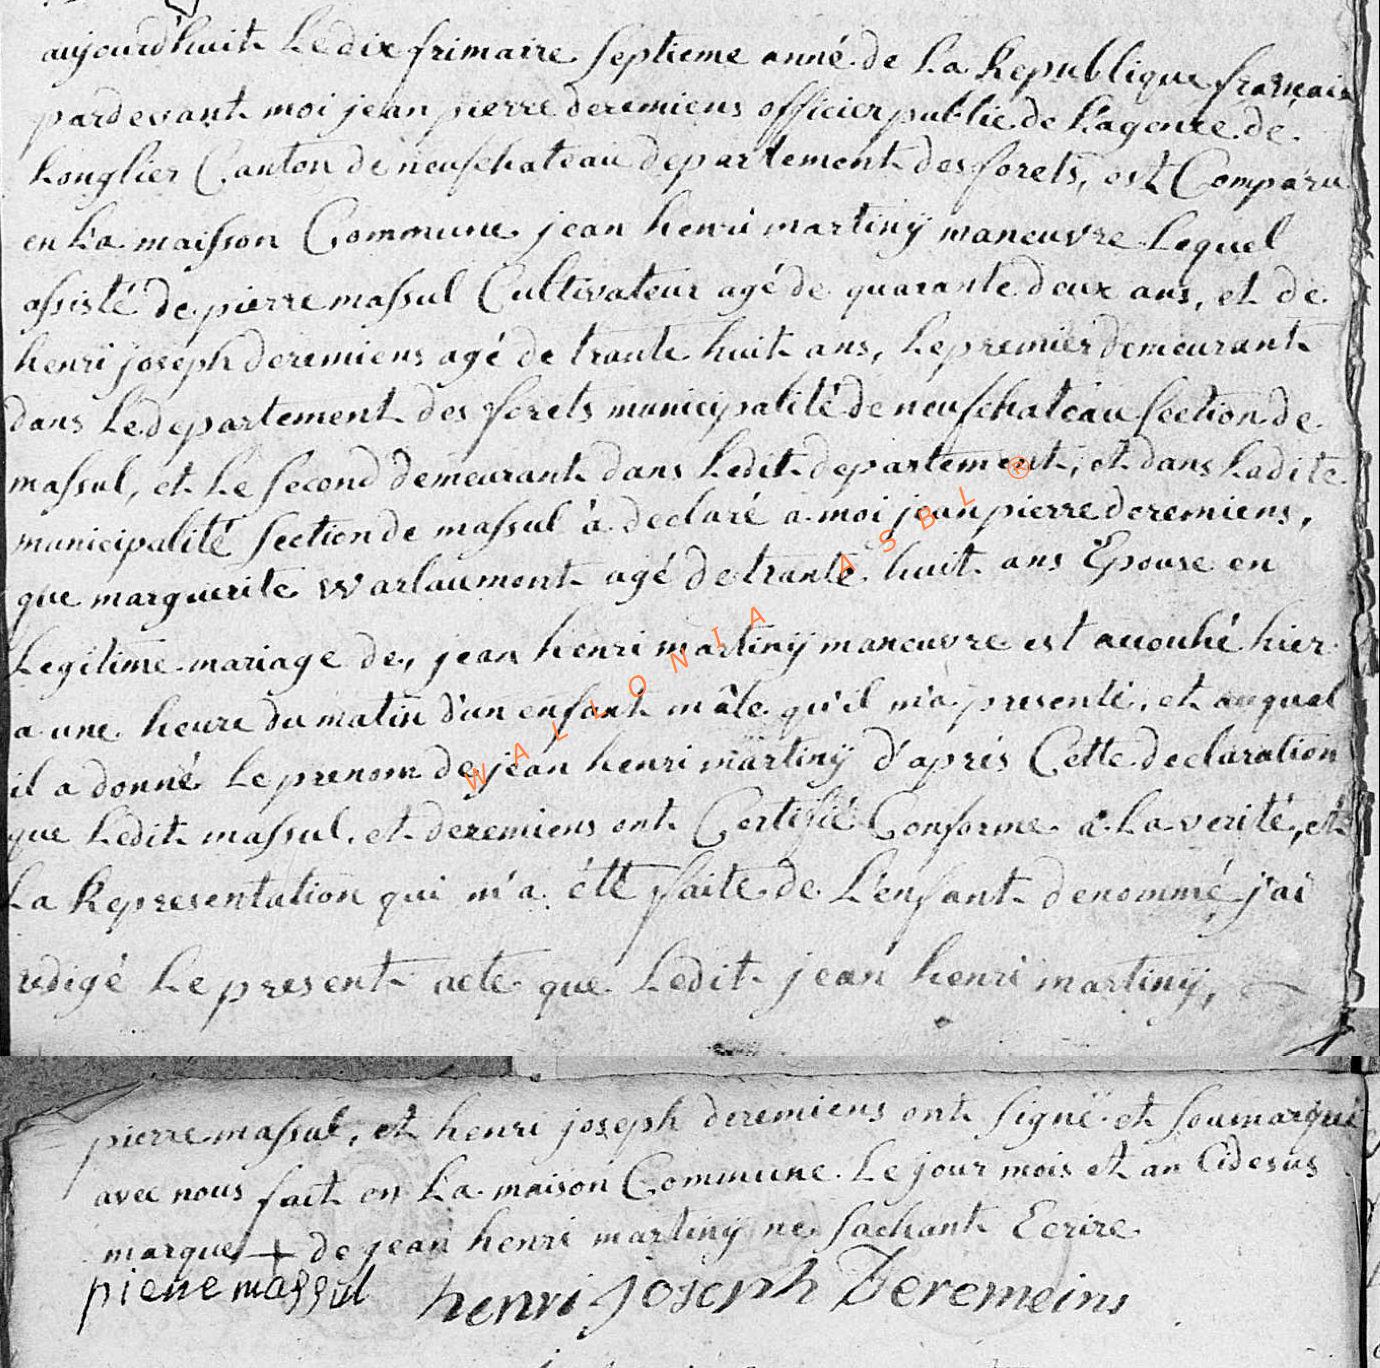 aujourd'huit Le dix frimaire septieme anné de La Republique français
pardevant moi jean pierre deremiens officier public de L'agence de
Longlier Canton de neufchateau departement des forets, est Comparu
en La maisson Commune jean henri martinÿ maneuvre Lequel
assisté de pierre massul Cultivateur agé de quarante deux ans, et de
henri joseph deremiens agé de trante huit ans, Le premier demeurant
dans Le departement des forets municipalité de neufchateau section de
massul, et Le second demeurant dans Ledit departement, et dans Ladite
municipalité section de massul à declaré a moi jean pierre deremiens,
que marguerite warlaumont agé de trante huit ans Epouse en
Legitime mariage de, jean henri martinÿ maneuvre est acouhé hier
a une heure du matin d'un enfant mâle qu'il m'a presenté, et auquel
il a donné Le prenom de jean henri martinÿ d'après Cette declaration
que Ledit massul, et deremiens ont Certifié Conforme a La verité, et
La Representation qui m'a été faite de L'enfant denommé j'ai
redigé Le present acte que Ledit jean henri martinÿ,
pierre massul, et henri joseph deremiens ont signé et soumarqué
avec nous fait en La maison Commune Le jour mois et an Cidesus
marque + de jean henri martinÿ ne sachant Ecrire
pierre massul henri joseph Deremeins
WALLONIA ASBL ®